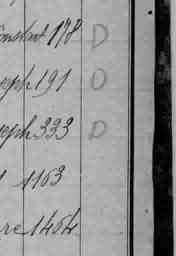 onstant 178 D
seph 191 D
seph 333 D
1163
re 1464